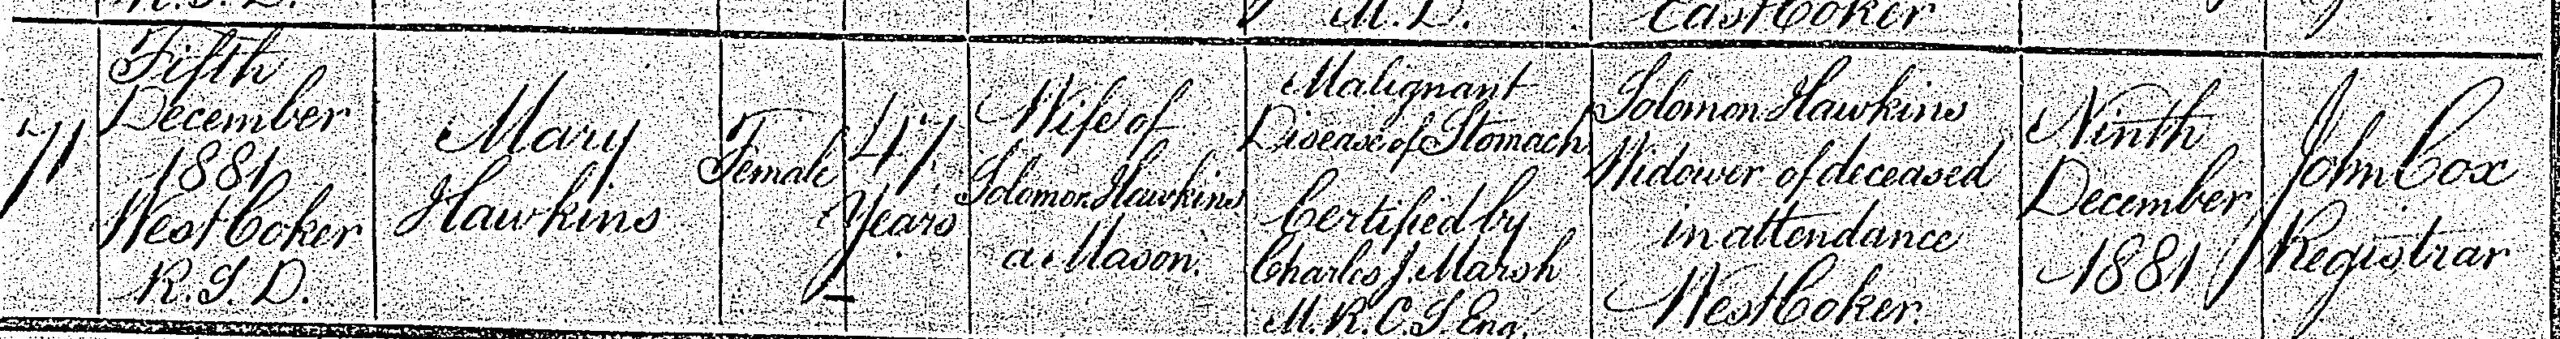 M.D.
East Coker
71
Fifth
December
1881
West Coker
R.S.D.
Mary
Hawkins
Female
47
Years
Wife of
Solomon Hawkins
a Mason.
Malignant
Disease of Stomach
Certified by
Charles J. Marsh
M.R.C.S. Eng.
Solomon Hawkins
Widower of deceased
in attendance
West Coker.
Ninth
December
1881
John Cox
Registrar